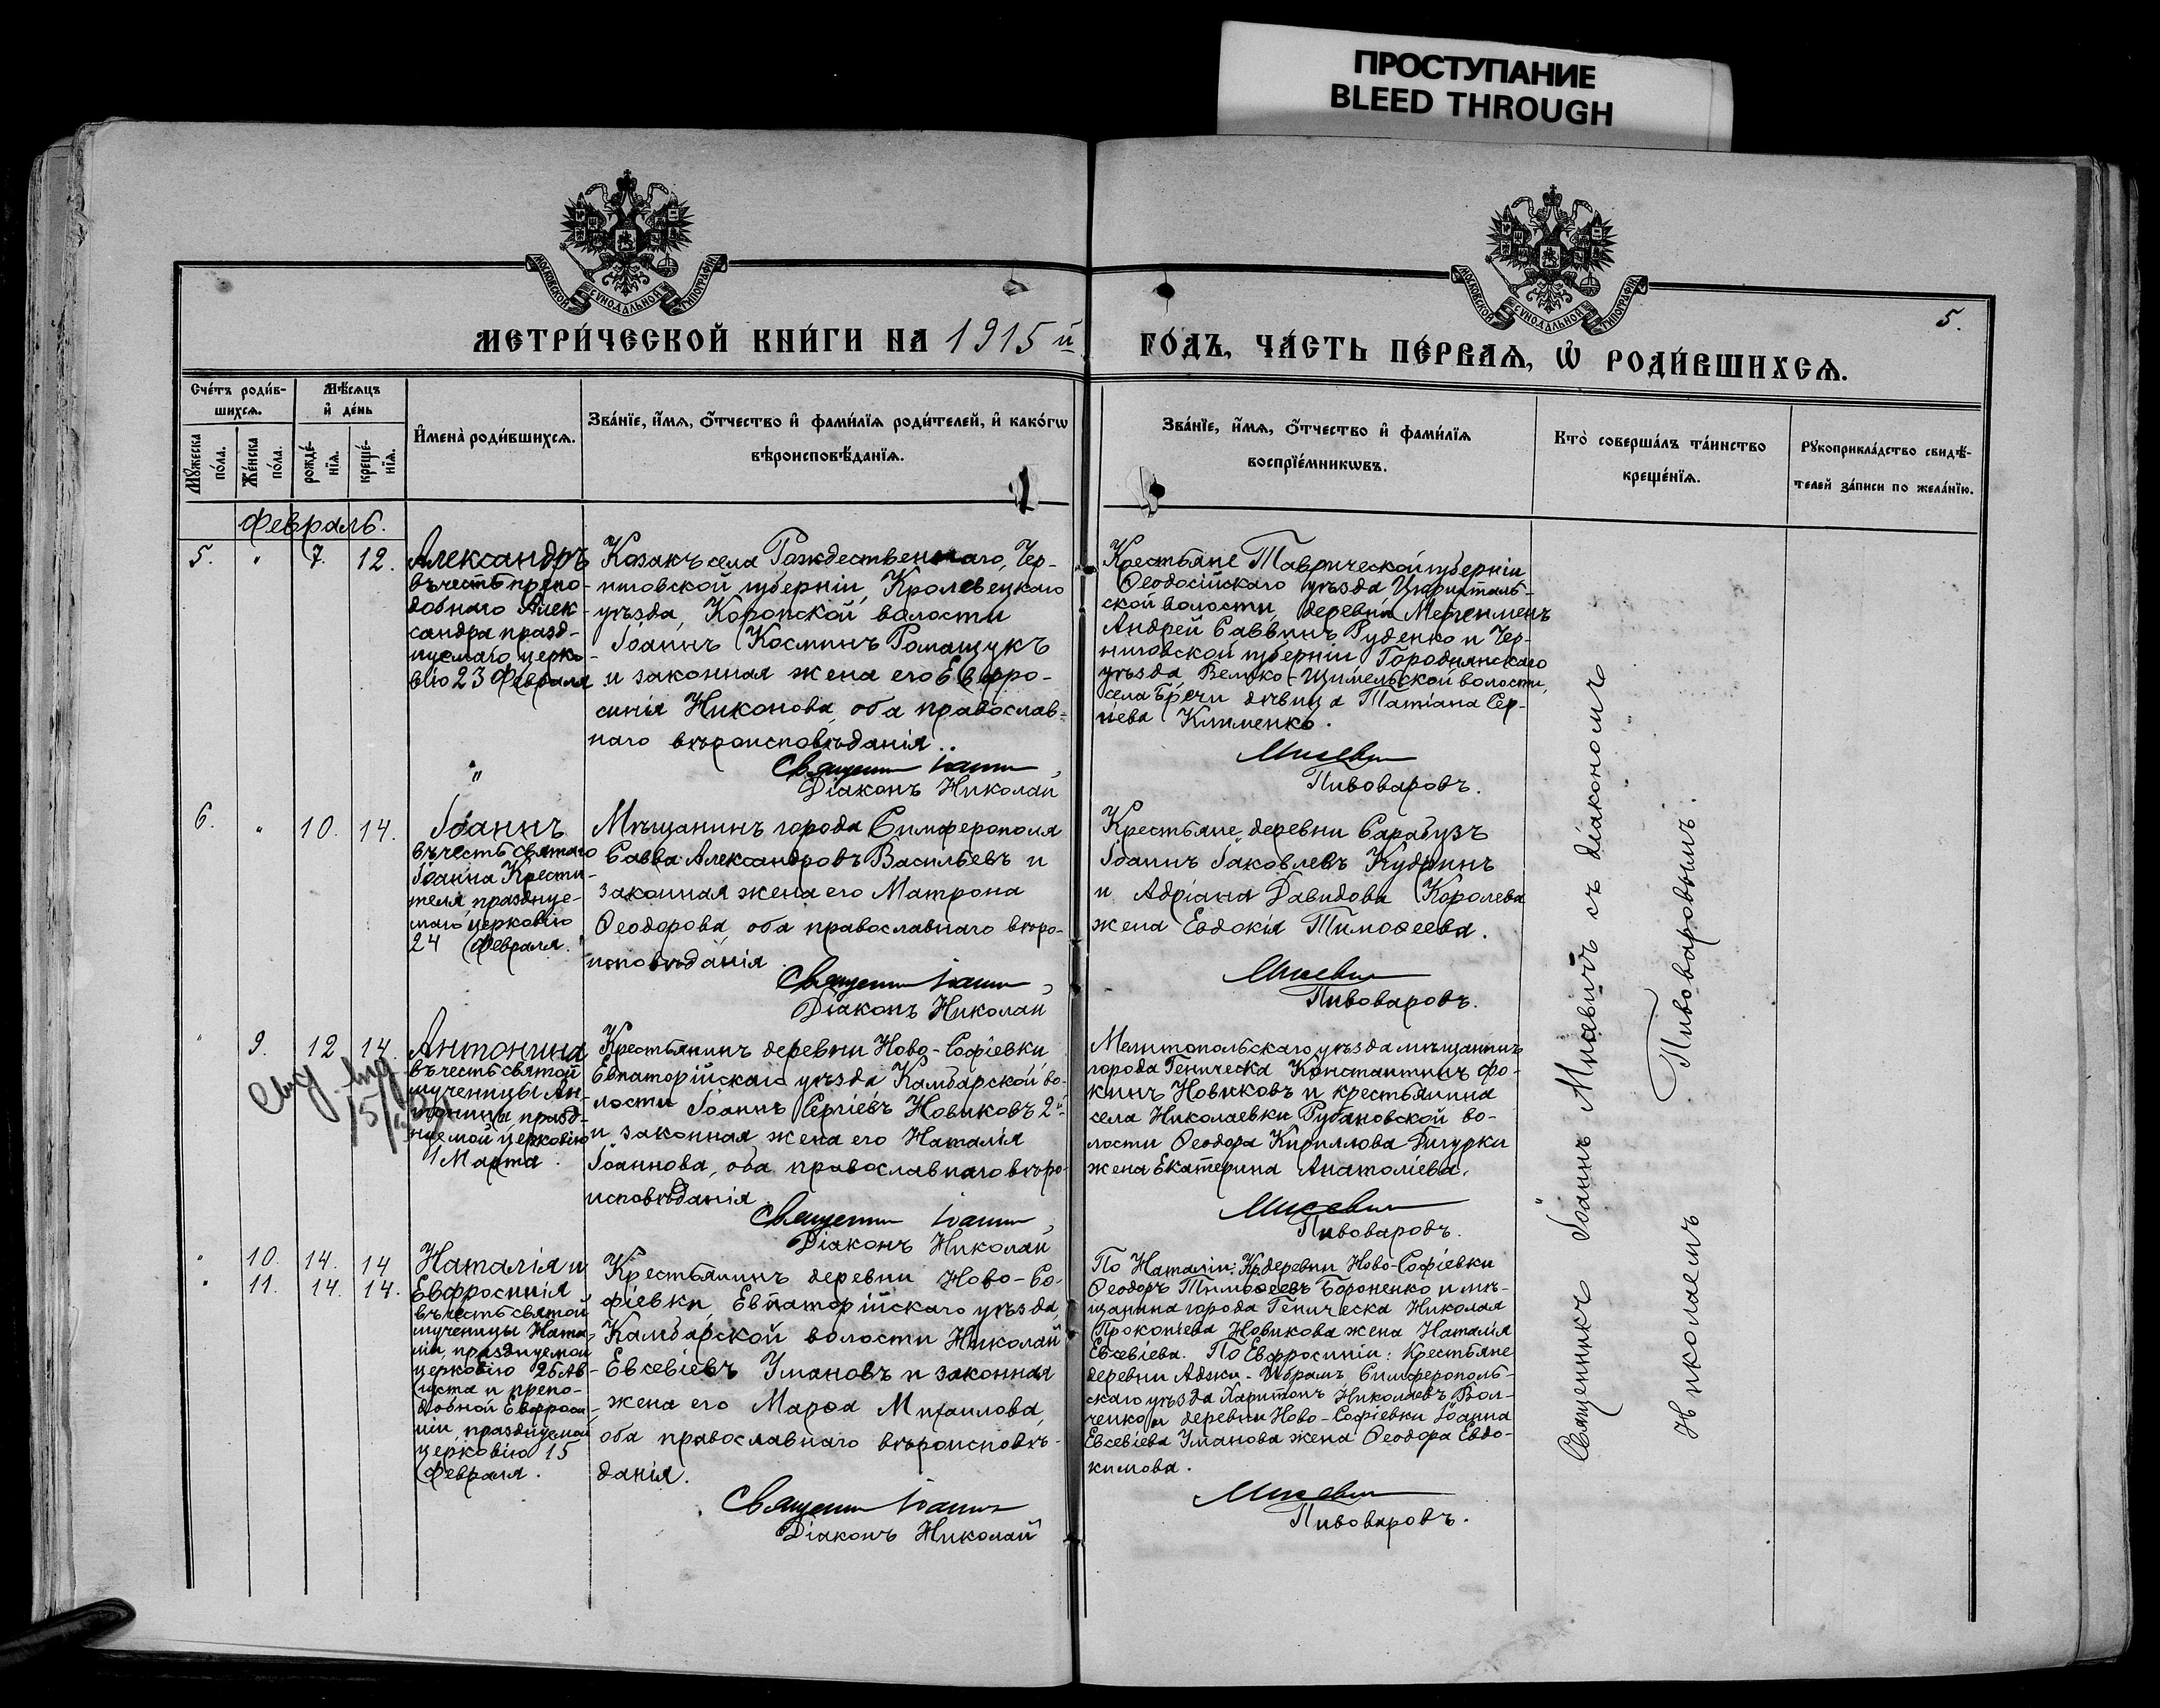 ПРОСТУПАНИЕ
BLEED THROUGH
МОСКОВСКОЙ СѴНОДАЛЬНОЙ ТИПОГРАФІИ
МОСКОВСКОЙ СѴНОДАЛЬНОЙ ТИПОГРАФІИ
5.
МЕТРИ́ЧЕСКОЙ КНИ́ГИ НА 1915 й
ГО́ДЪ, ЧА́СТЬ ПЕ́РВАѦ, Ѡ҆ РОДИ́ВШИХСѦ.
Сче́тъ роди́в-
шихсѧ.
Мѣ́сѧцъ
и҆ де́нь
Мꙋ́жеска
по́ла.
Же́нска
по́ла.
рожде́-
нїѧ.
креще́-
нїѧ.
И҆мена̀ роди́вшихсѧ.
Зва́нїе, и҆́мѧ, ѻ҆́тчество и҆ фами́лїѧ роди́телей, и҆ како́гѡ
вѣроисповѣ́данїѧ.
Зва́нїе, и҆́мѧ, ѻ҆́тчество и҆ фами́лїѧ
воспрїе́мникѡвъ.
Кто̀ соверша́лъ та́инство
креще́нїѧ.
Рꙋкоприкла́дство свидѣ́-
телей за́писи по жела́нїю.
Февраль.
5. " 7. 12.
Александръ
въ честь препо-
добнаго Алек-
сандра празд-
нуемаго церко-
вію 23 Февраля
"
Козакъ села Рождественскаго, Чер-
ниговской губерніи, Кролевецкаго
уѣзда, Коропской волости
Іоаннъ Косминъ Ромащукъ
и законная жена его Евфро-
синія Никонова, оба православ-
наго вѣроисповѣданія.
Священн Іоанн
Діаконъ Николай
Крестьяне Таврической губерніи
Ѳеодосійскаго уѣзда
ской волости, деревни
Андрей Саввинъ Руденко и Чер-
ниговской губерніи Городнянскаго
уѣзда, Велико-Щимельской волости,
села Бречи дѣвица Татіана Сер-
гіева Клименко.
Мисевич
Пивоваровъ.
6. " 10. 14.
Іоаннъ
въ честь святаго
Іоанна Крести-
теля, празднуе-
маго церковію
24 Февраля.
Мѣщанинъ города Симферополя
Савва Александровъ Васильевъ и
законная жена его Матрона
Ѳеодорова, оба православнаго вѣро-
исповѣданія.
Священн Іоанн
Діаконъ Николай
Крестьяне деревни Сарабузъ
Іоаннъ Іаковлевъ Кудринъ
и Адріана Давидова Королева
жена Евдокія Тимоѳеева.
Мисевич
Пивоваровъ.
" 9. 12 14.
Антонина
въ честь святой
мученицы Ан-
тонины, празд-
нуемой церковію
1 Марта.
Крестьянинъ деревни Ново-Софіевки,
Евпаторійскаго уѣзда Камбарской во-
лости Іоаннъ Сергіевъ Новиковъ 2й
и законная жена его Наталія
Іоаннова, оба православнаго вѣро-
исповѣданія
Священн Іоанн
Діаконъ Николай
Мелитопольскаго уѣзда мѣщанинъ
города Геническа Константинъ Фо-
кинъ Новиковъ и крестьянина
села Николаевки Рубановской во-
лости Ѳеодора Кириллова
жена Екатерина Анатоліева.
Мисевич
Пивоваровъ.
" 10. 14. 14
" 11. 14. 14.
Наталія и
Евфросинія
въ честь святой
мученицы Ната-
ліи, празднуемой
церковію 26 Ав-
густа и препо-
добной Евфроси-
ніи, празднуемой
церковію 15
Февраля.
Крестьянинъ деревни Ново-Со-
фіевки, Евпаторійскаго уѣзда,
Камбарской волости Николай
Евсевіевъ Умановъ и законная
жена его Марѳа Михаилова,
оба православнаго вѣроисповѣ-
данія.
Священн Іоанн
Діаконъ Николай
По Наталіи: Кр. деревни Ново-Софіевки
Ѳеодоръ Тимоѳеевъ Бороненко и мѣ-
щанина города Геническа Николая
Прокопіева Новикова жена Наталія
Евсевіева. По Евфросиніи: Крестьяне
деревни Аджи-Ибрамъ, Симферополь-
скаго уѣзда Харитонъ Николаевъ Вол-
ченко и деревни Ново-Софіевки Іоанна
Евсевіева Уманова жена Ѳеодора Евдо-
кимова.
Мисевич
Пивоваровъ.
Священникъ Іоаннъ Мисевичъ съ діакономъ
Николаемъ Пивоваровымъ.